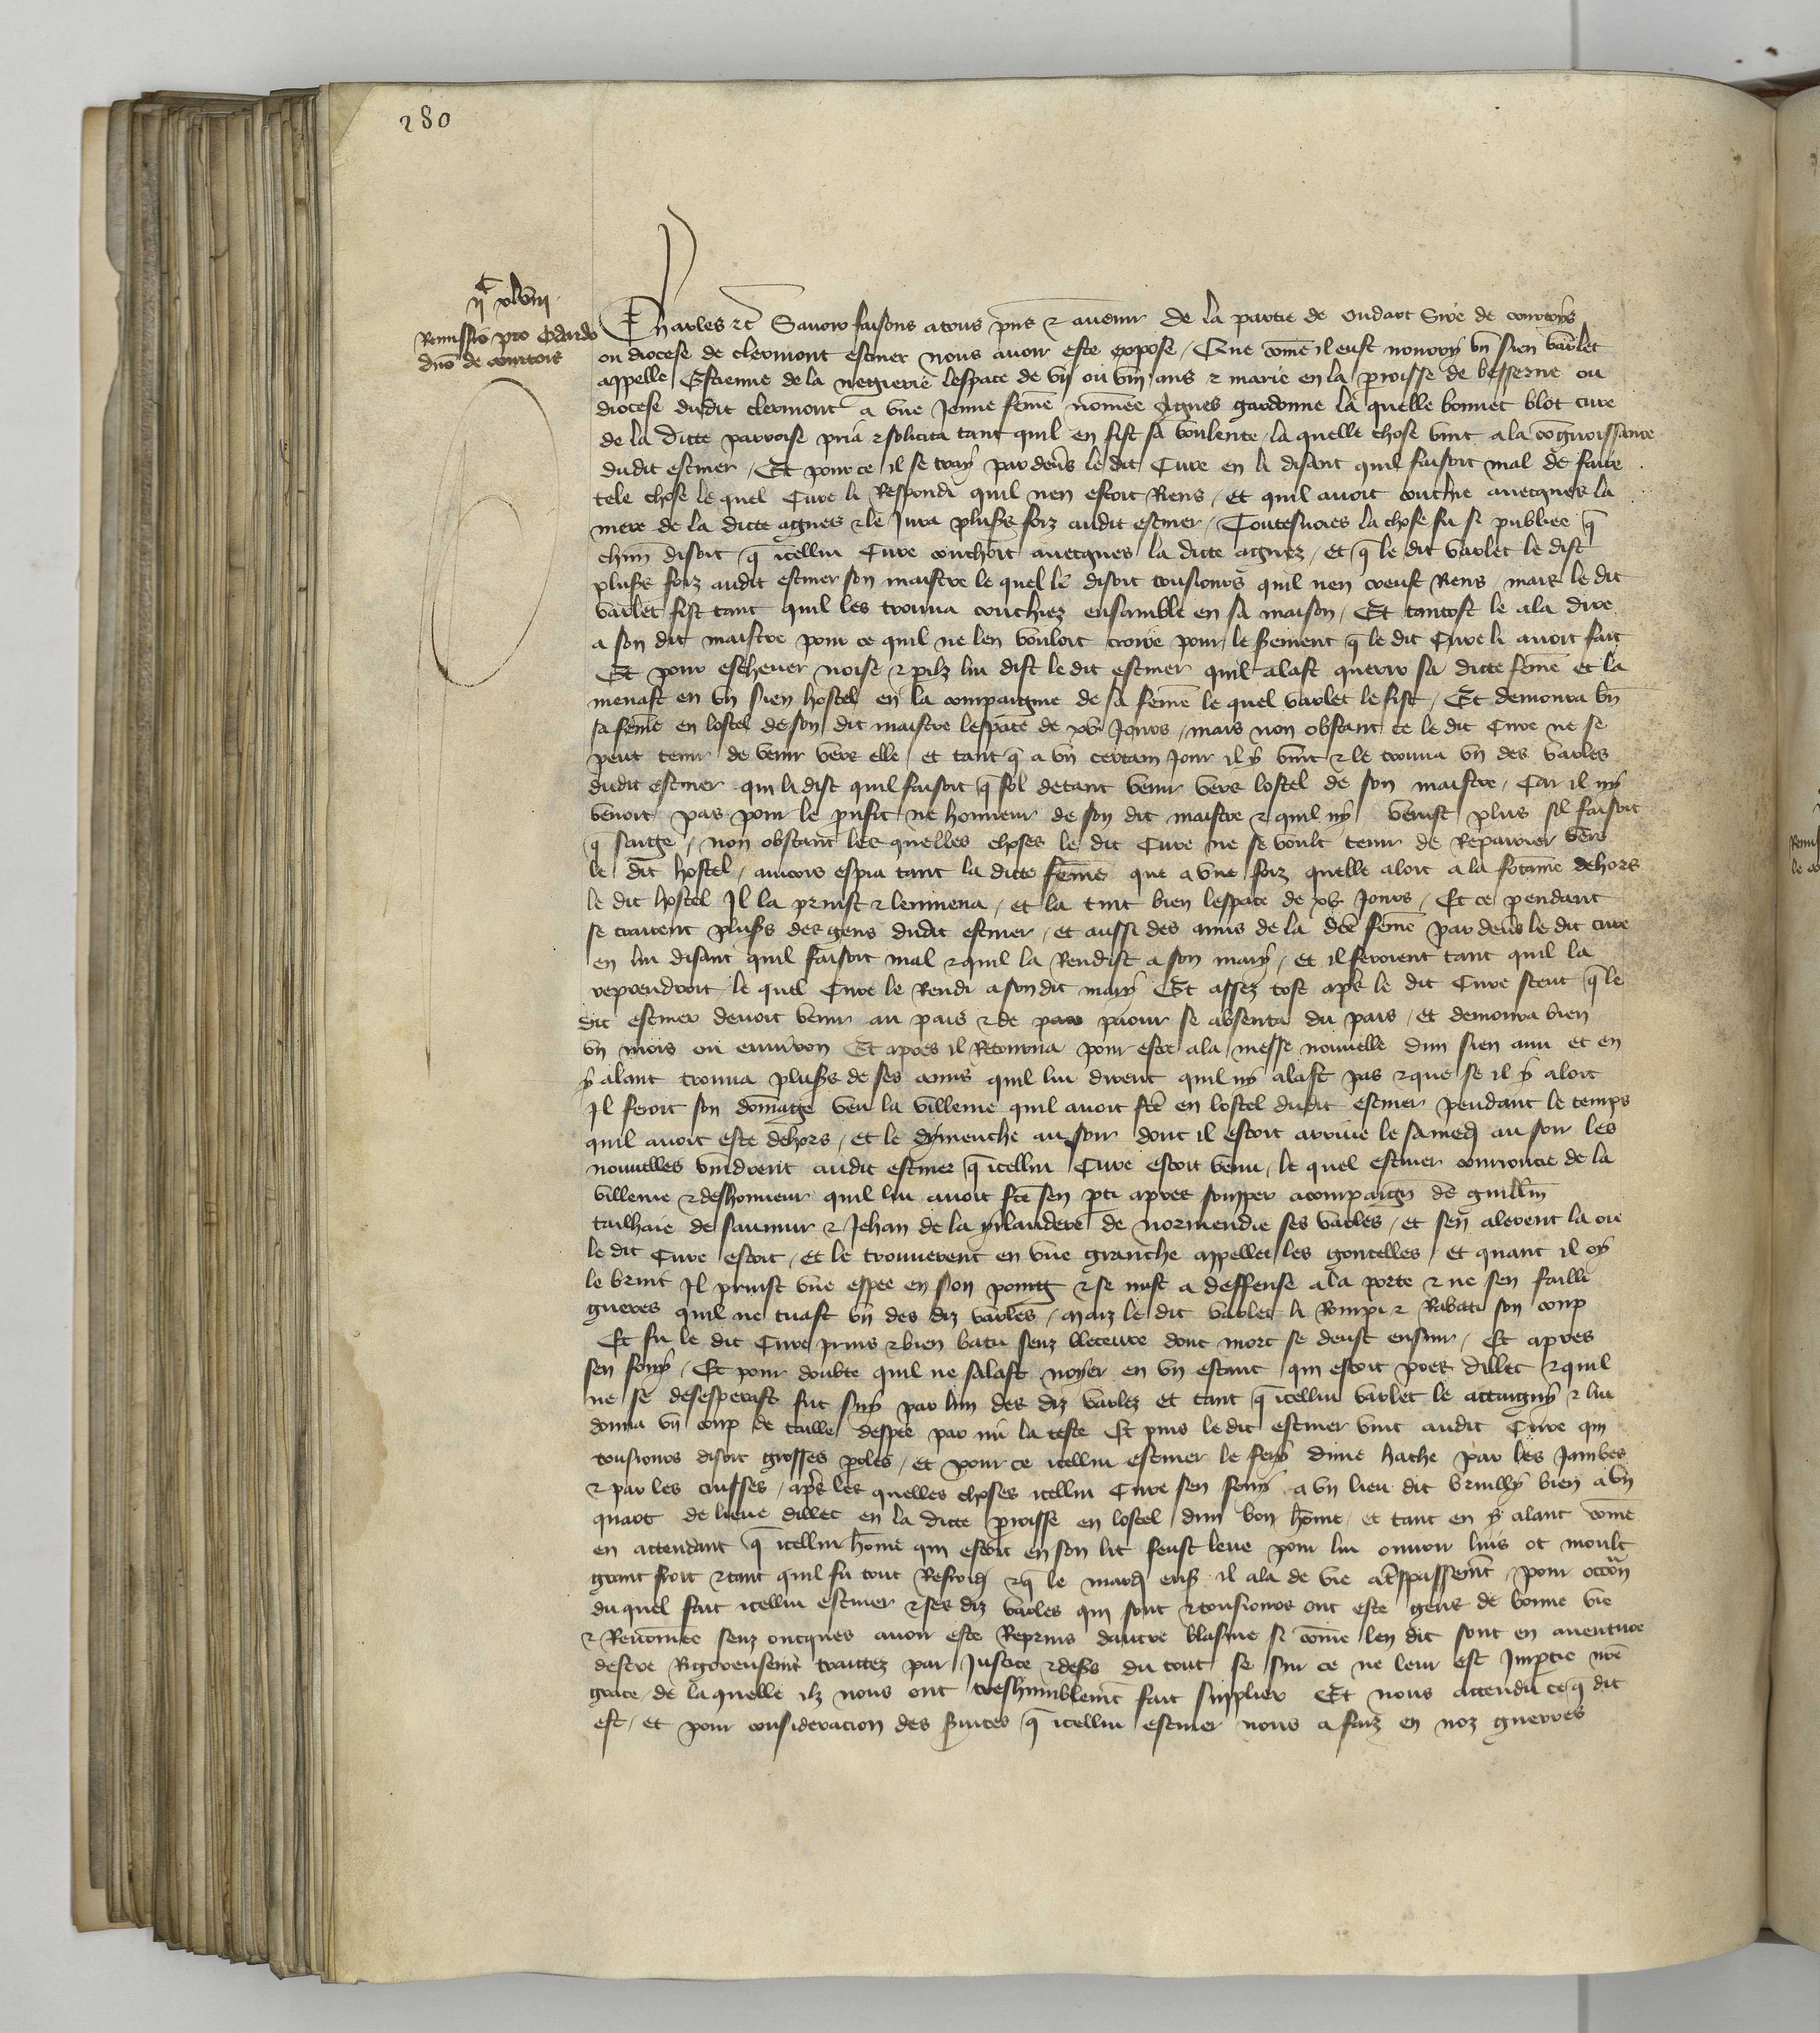 280
ijC xlviij
Remissio pro Odardo
dno de courtois
Charles &c Savoir faisons a tous pns & avenir de la partie de oudart Sire de courtoys
ou diocese de clermont escuier nous avoir este expose / Que come il eust nourry un sien varlet
appelle Estienne de la negrerie lespace de vij ou viij ans & marie en la proisse de besserne ou
diocese dudit clermont a une Jeune feme nomee Agnes gardonne la quelle bonnet blot cure
de la ditte parroise pria & solicita tant quil en fist sa voulente / la quelle chose vint a la cognoissance
dudit escuier / Et pour ce il se tray par devs le dit Cure en li disant quil faisoit mal de faire
tele chose le quel Cure li Respondi quil nen estoit Riens / et quil avoit couchie avecques la
mere de la dicte agnes & le Jura plusrs foiz audit escuier / Toutesvoies la chose fu si publiee q
chun disoit q icellui Cure couchoit avecques la dicte agnez / et q le dit varlet le dist
plusrs foiz audit escuier son maistre le quel le disoit tousiours quil nen creust Riens / mais le dit
varlet fist tant quil les trouva couchiez ensamble en sa maison / Et tantost le ala dire
a son dit maistre pour ce quil ne len vouloit croire pour le serement q le dit Cure li avoit fait
Et pour eschever noise & perilz lui dist le dit escuier quil alast querir sa dicte feme et la
menast en un sien hostel en la compaignie de sa feme le quel varlet le fist / Et demoura
sa feme en lostel de son dit maistre lespace de xv Jours / mais non obstant ce le dit Cure ne se
peut tenir de venir vers elle / et tant q a un certain Jour il y vint & le trouva un des varles
dudit escuier qui li dist quil faisoit q fol de tant venir vers lostel de son maistre / Car il ny
venoit pas pour le prufit ne honneur de son dit maistre & quil ny venist plus sil faisoit
q saige / non obstant les quelles choses le dit Cure ne se voult tenir de Repairier vers
le dit hostel / aincois espia tant la ditte feme que a une foiz quelle aloit a la fotaine dehors
le dit hostel Il la prinst & lenmena / et la tint bien lespace de xv Jours / Et ce pendant
se trairent plusrs des gens dudit escuier / et aussi des amis de la dce feme par devs le dit cure
en lui disant quil faisoit mal & quil la Rendist a son mary / et il feroient tant quil la
reprendroit / le quel Cure le Rendi a son dit mary Et assez tost apres le dit Cure sceut q le
dit escuier devoit venir au pais & de paour se absenta du pais / et demoura bien
un mois ou environ Et apres il Retourna pour estre a la messe nouvelle dun sien ami et en
y alant trouva plusrs de ses amis quil lui dirent quil ny alast pas & que se il y aloit
Il feroit son domaige veu la villenie quil avoit fcte en lostel dudit escuier pendant le temps
quil avoit este dehors / et le dymenche au soir dont il estoit arrive le samedj au soir les
nouvelles vindrent audit escuier q icellui Cure estoit venu / le quel escuier courroucie de la
villenie & deshonneur quil lui avoit fcte sen pti apres soupper acompaign de guillm
tailhaie de saumur & Jehan de la de normendie ses varles / et sen alerent la ou
le dit Cure estoit / et le trouverent en une granche appellee les goutelles / et quant il oy
le bruit Il prinst une espee en son poing & se mist a deffense a la porte & ne sen failli
gueres quil ne tuast un des diz varles / Maiz le dit varlet li Rompi & Rabati son coup
Et fu le dit Cure prins & bien batu senz bleceure dont mort se deust ensuir / Et apres
sen fouy / Et pour doubte quil ne salast noyer en un estant qui estoit pres dillec & quil
ne se desesperast fut suy par lun des diz varlez et tant q icellui varlet le attaigny & lui
donna un coup de taille despee par mi la teste Et puis le dit escuier vint audit Cure qui
tousiours disoit grosses proles / et pour ce icellui escuier le fery dune hache par les Jambes
& par les cuisses / apres les quelles choses icellui Cure sen fouy a un lieu dit brully bien a un
quart de lieue dillec en la dicte proisse en lostel dun bon home / et tant en y alant come
en attendant q icellui home qui estoit en son lit feust leve pour lui ouvrir luis ot moult
grant froit & tant quil fu tout Refroidj & q le mardj ens il ala de vie a trspassemt / pour occon
du quel fait icellui escuier & ses diz varles qui sont & tousiours ont este gens de bonne vie
& Renomee senz oncques avoir este Reprins dautre blasme si come len dit sont en aventure
destre Rigoreusemt traittez par Justice & desrs du tout se sur ce ne leur est Impartie nre
grace / de la quelle ilz nous ont treshumblemt fait supplier Et nous attendu ce q dit
est / et pour consideracion des services q icellui escuier nous a faiz en noz guerres